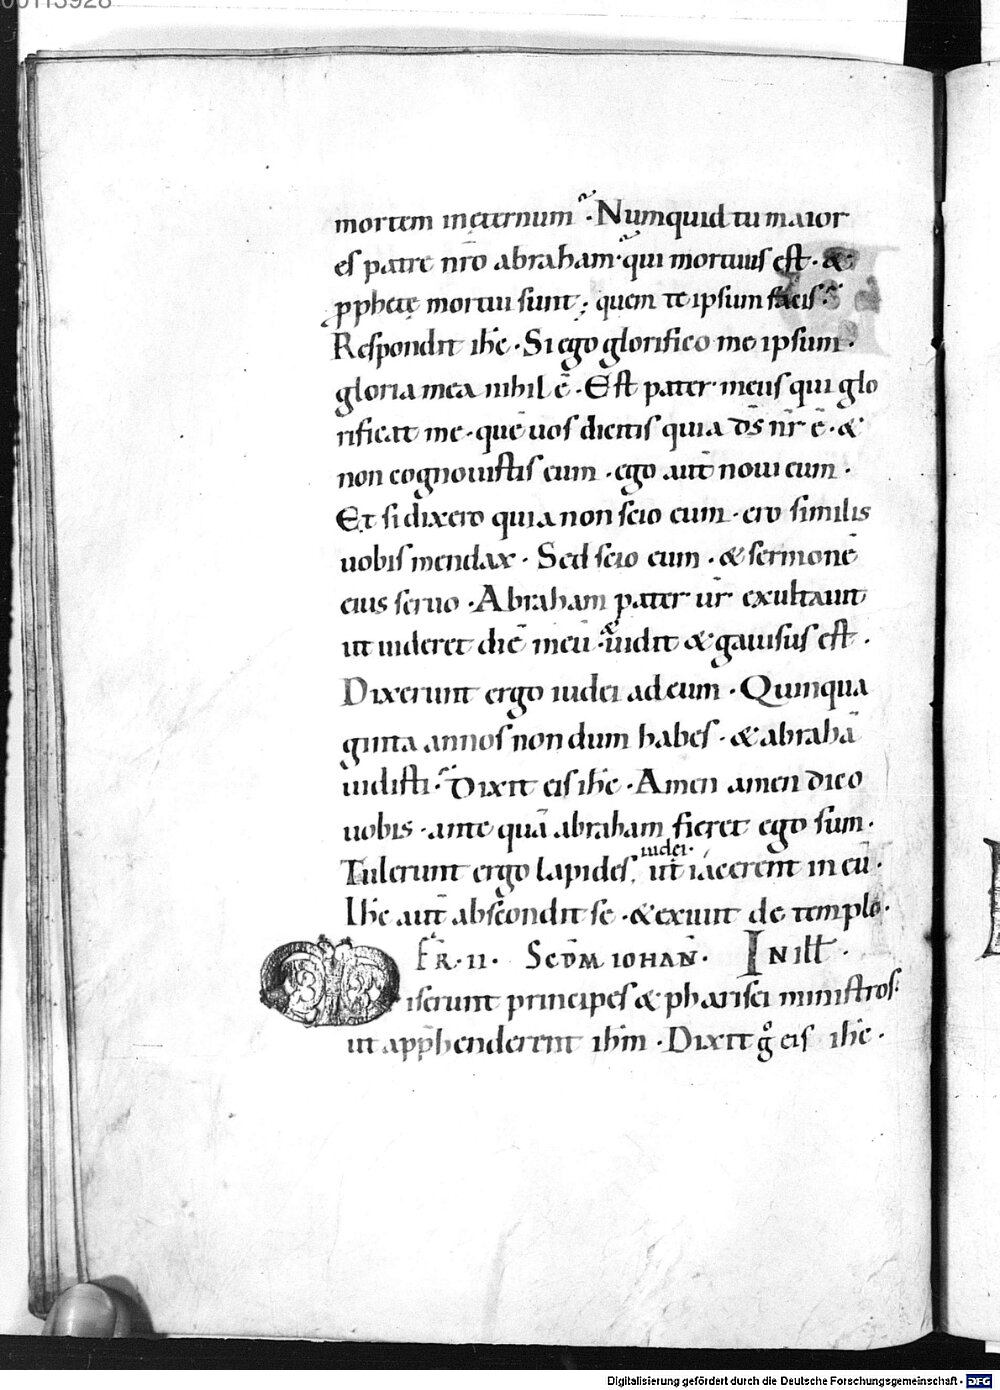 00113928
mortem inęternum · Numquid tu maior
es patre nr̄o abraham · qui mortuus est · &
ꝓphetę mortui sunt ; quem te ipsum facis ·
Respondit ih̄c · Si ego glorifico me ipsum ·
gloria mea nihil ē · Est pater meus qui glo
rificat me · quē uos dicitis quia d̄s nr̄ ē · &
non cognouistis eum · ego aut̄ noui eum ·
Et si dixero quia non scio eum · ero similis
uobis mendax · Sed scio eum · & sermonē
eius seruo · Abraham pater ur̄ exultauit
ut uideret diē meū · & uidit & gauisus est ·
Dixerunt ergo iudei ad eum · Quinqua
ginta annos nondum habes · & abrahā
uidisti · Dixit eis ih̄c · Amen amen dico
uobis · ante quā abraham fieret ego sum ·
Tulerunt ergo lapides iudei · ut iacerent in eū ·
Ih̄c aut̄ abscondit se · & exiuit de templo ·
FR̄ · II · SCD̄M IOHAN̄ · IN ILL̄ ·
Miserunt principes & pharisei ministros ·
ut app̄henderent ih̄m · Dixit gͦ eis ih̄c ·
Digitalisierung gefördert durch die Deutsche Forschungsgemeinschaft - DFG